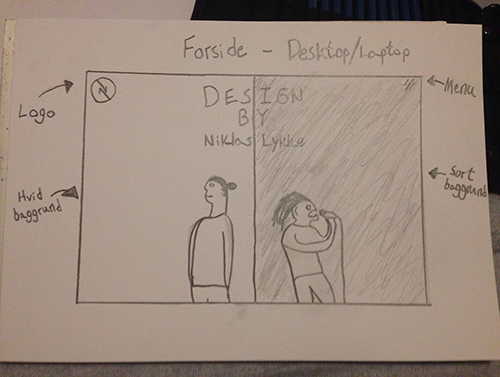 Forside - Desktop/Laptop
Logo
N
Menu
DESIGN
BY
Niklas Lykke
Hvid
baggrund
Sort
baggrund